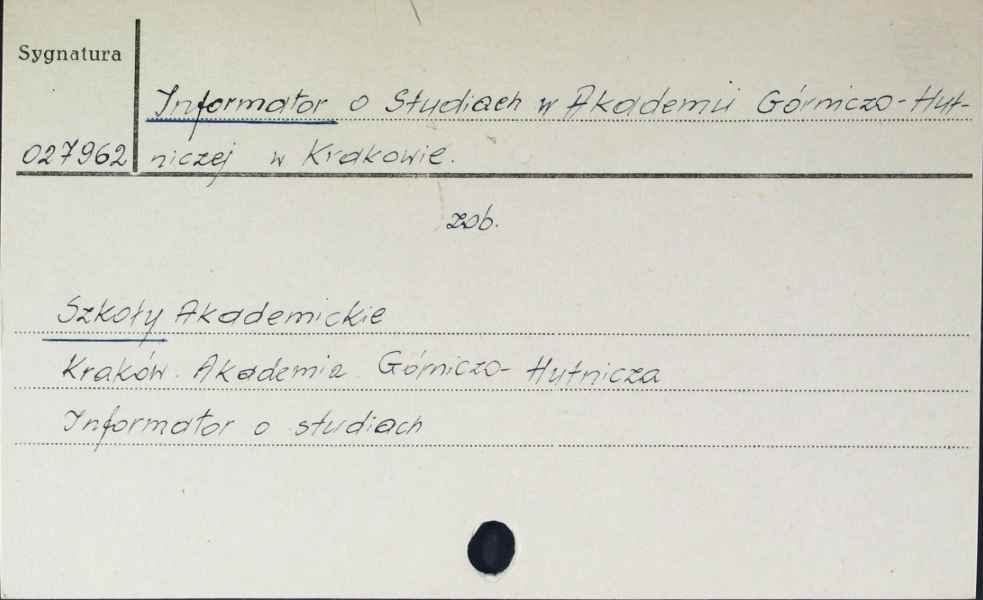 Sygnatura
Informator o Studiach w Akademii Górniczo-Hut-
027962 niczej w Krakowie.
zob.
Szkoły Akademickie
Kraków. Akademia Górniczo-Hutnicza
Informator o studiach